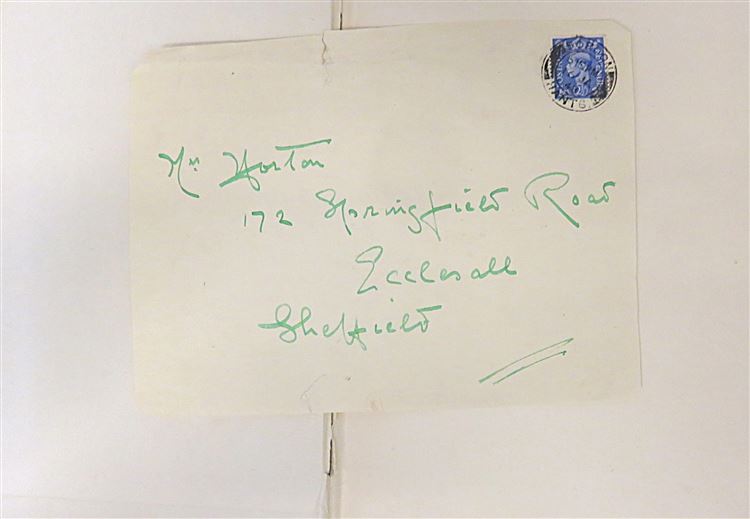 Mr Horton
172 Springfield Road
Ecclesall
Sheffield
HANTS